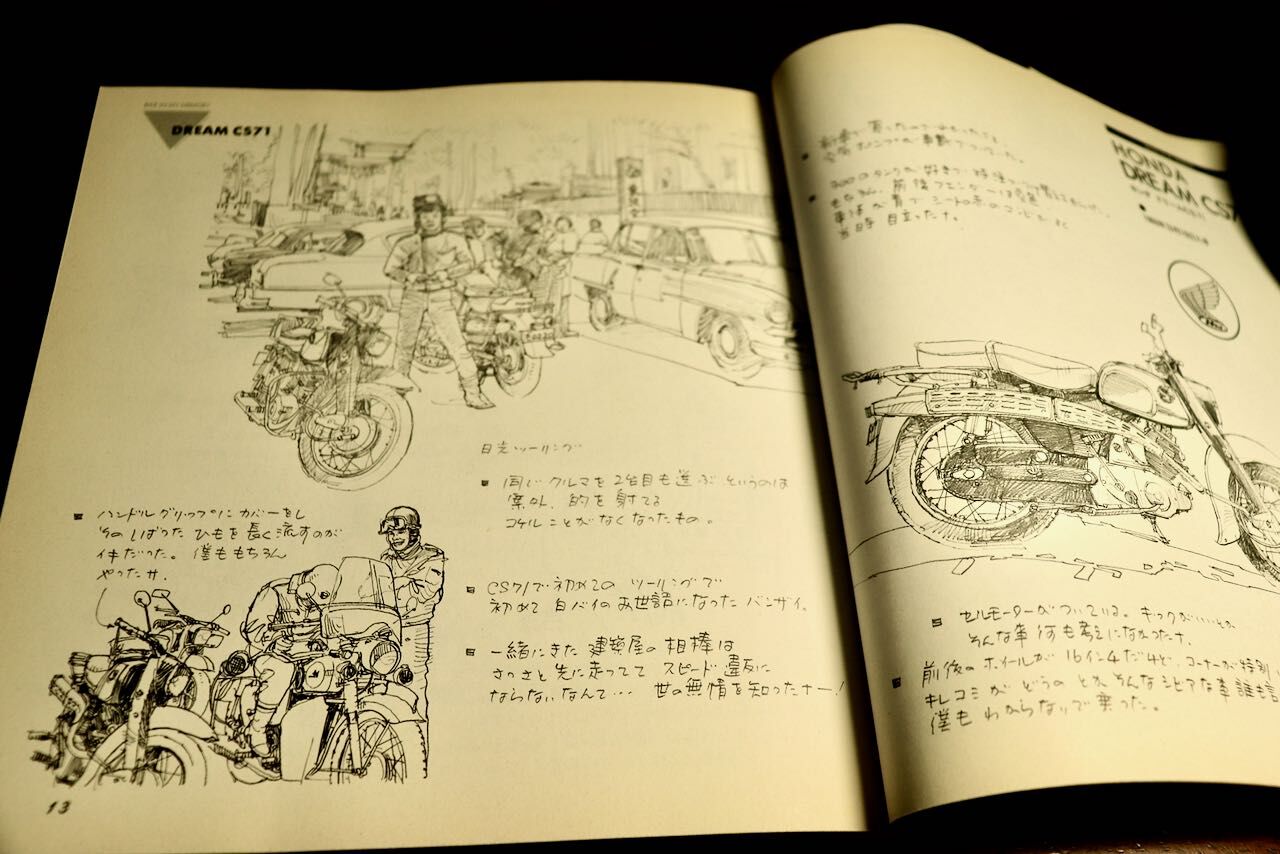 DREAM CS71
日光ツーリング
■ 同じクルマを2台目も選ぶというのは
案外、的を射てる
コケルことがなくなったもの。
■ ハンドルグリップにカバーをし
そのしばった ひもを長く流すのが
イキだった。僕ももちろん
やったサ.
■ CS71で初めての ツーリングで
初めて 白バイのお世話になった バンザイ。
■ 一緒にきた 建築屋の 相棒は
さっさと先に走ってて スピード違反に
ならない、なんて… 世の無情を知ったナー!
13
HONDA
DREAM CS7
当時 目立ったナ。
■ セルモーターがついている。キックがいいとか
そんな事何も考えになかったナ。
■ 前後のホイールが 16インチだけど、コーナーが特別
キレコミが どうの とか そんなシビアな事誰も言
僕も わからないで 乗った。